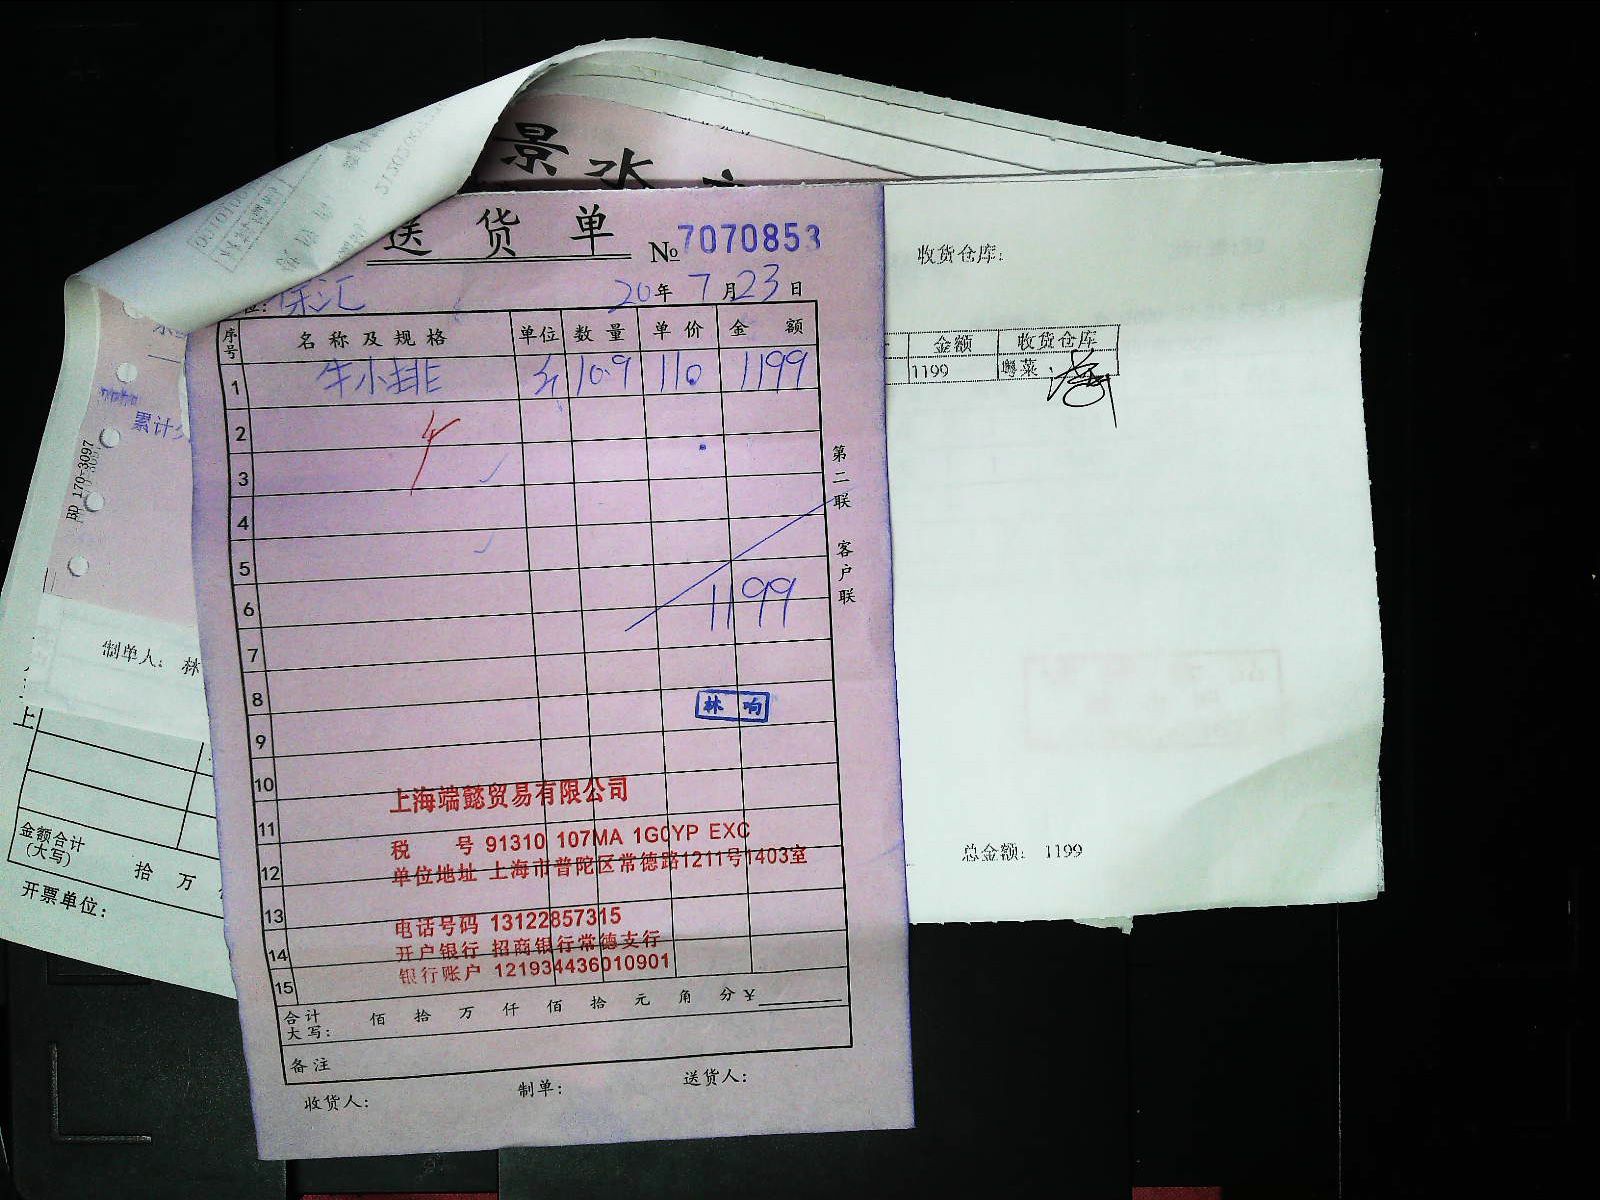 景水
送货单 № 7070853
保汇 20年 7月 23日
序号 名称及规格 单位 数量 单价 金额
1 牛小排 斤 10.9 110. 1199
2
3
4
5
6 1199
7
8 林响
9
10
11
12
13
14
15
上海端懿贸易有限公司
税 号 91310 107MA 1G0YP EXC
单位地址 上海市普陀区常德路1211号1403室
电话号码 13122857315
开户银行 招商银行常德支行
银行账户 121934436010901
合计大写: 佰 拾 万 仟 佰 拾 元 角 分 ¥
备注
收货人: 制单: 送货人:
第二联 客户联
收货仓库:
金额 收货仓库
1199 粤菜
总金额: 1199
累计
BD 170-3097
制单人: 林
上
金额合计
(大写) 拾 万
开票单位: